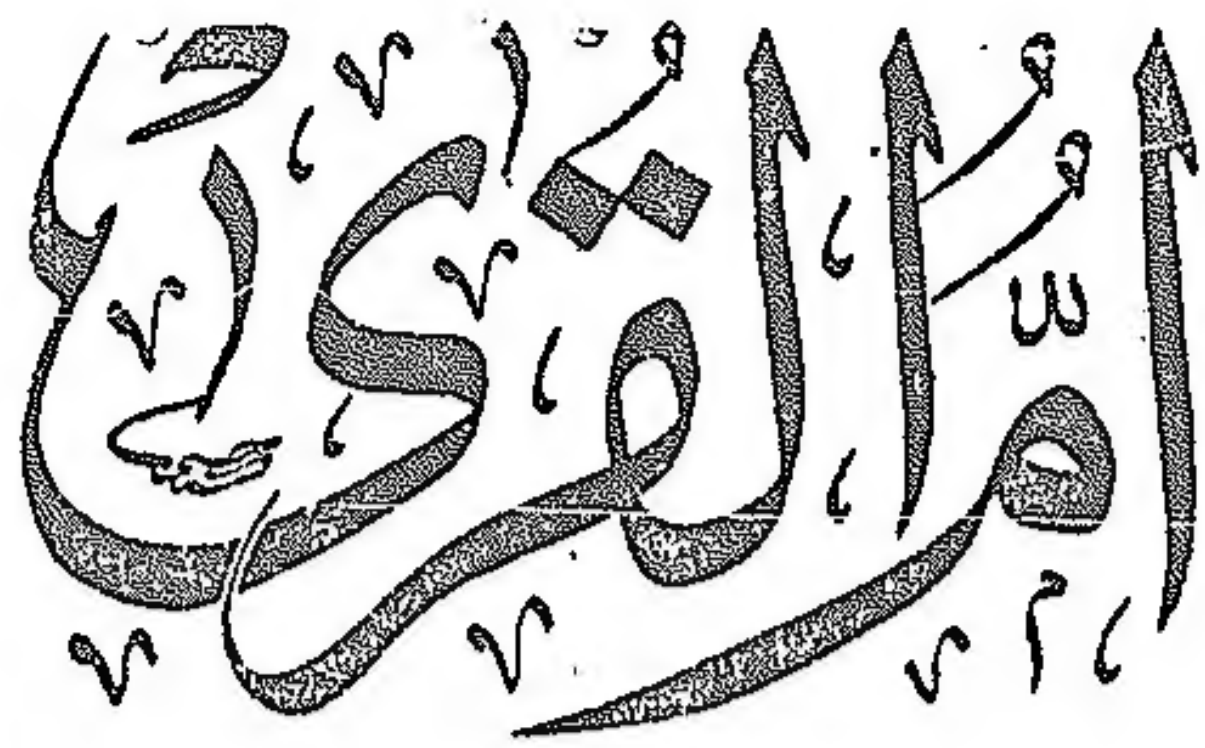 أُمُّ الْقُرَىٰ